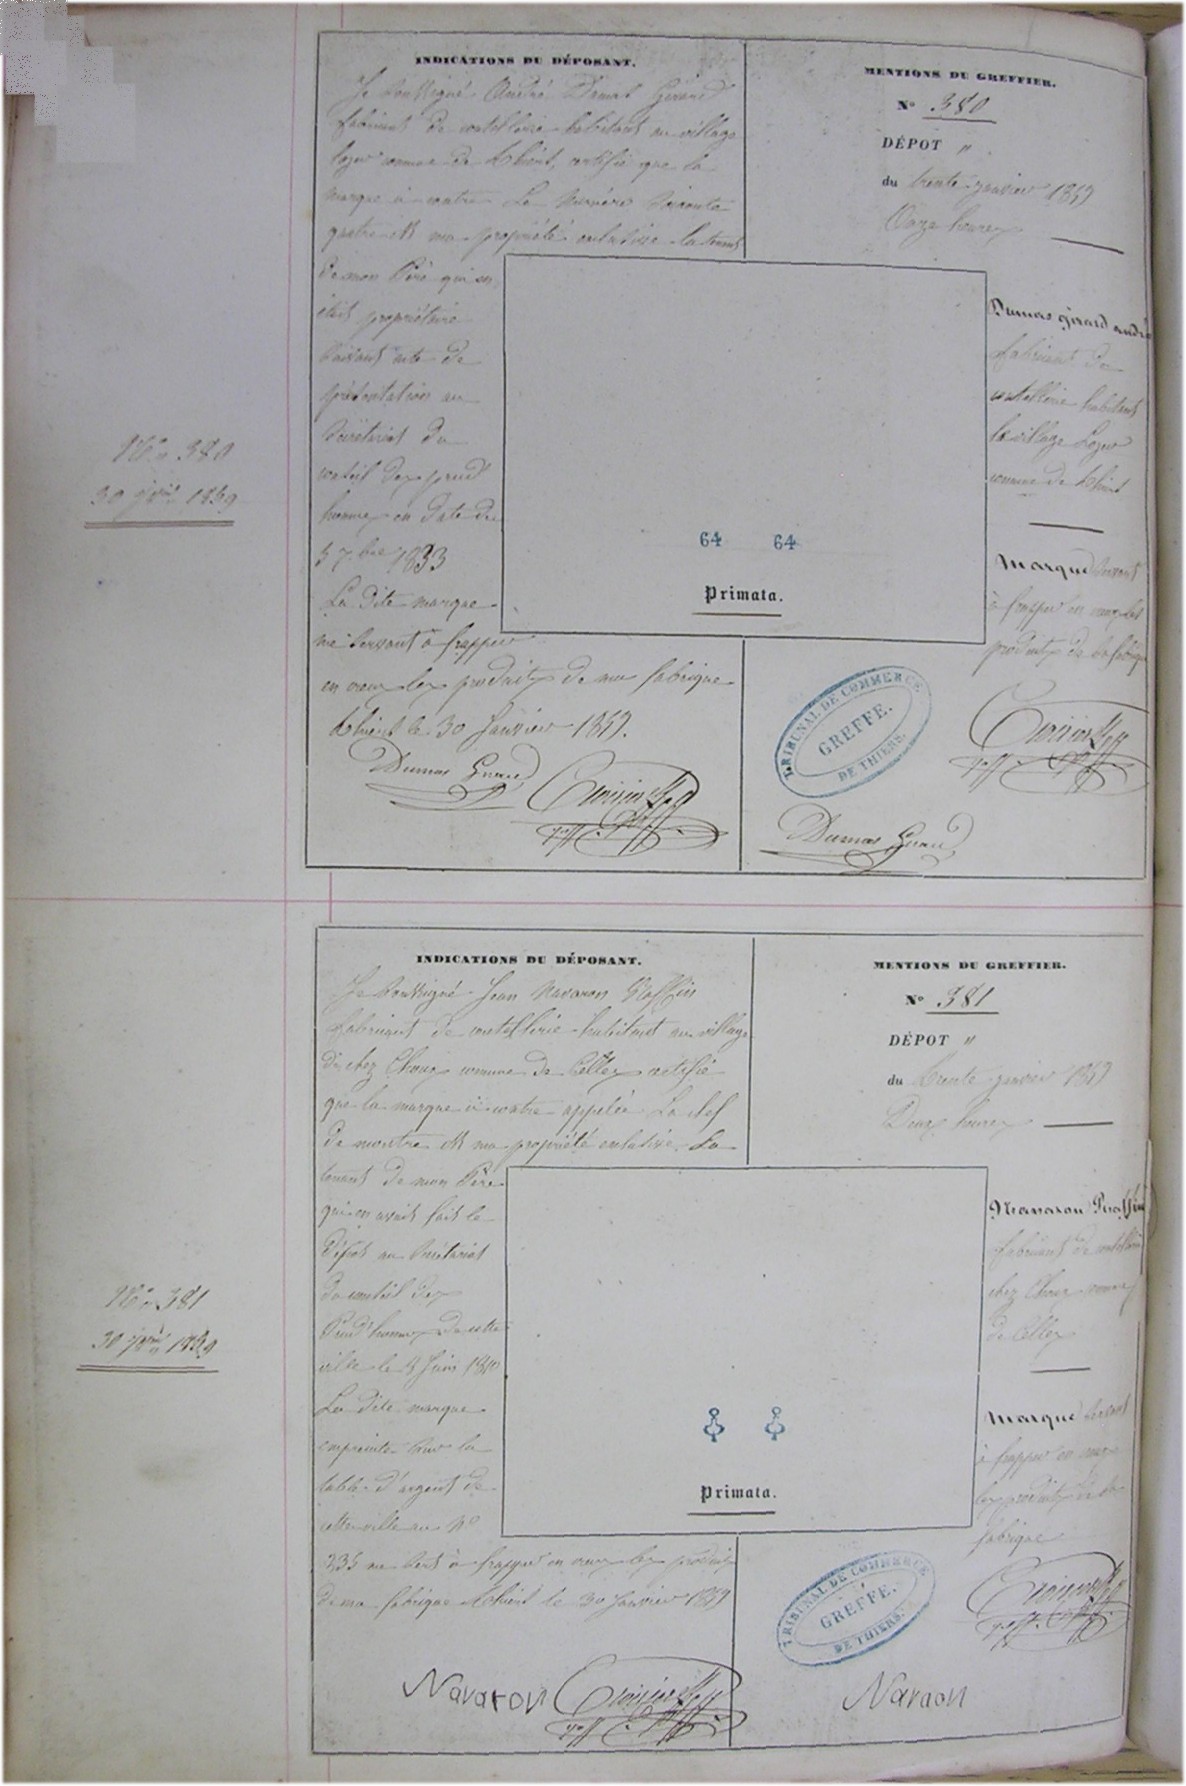 INDICATIONS DU DÉPOSANT.
Je soussigné André Dumas Girard
fabricant de coutellerie habitant au village
commune de Thiers, certifie que la
marque ci contre Le Numéro soixante
quatre est ma propriété exclusive la tenant
de mon Père qui en
était propriétaire
suivant acte de
présentation au
Secrétariat du
conseil des prud
hommes en date du
5 7.bre 1833
La dite marque
me servant à frapper
en creux les produits de ma fabrique
Thiers le 30 Janvier 1859.
Dumas Girard
MENTIONS DU GREFFIER.
N° 380
DÉPOT "
du trente janvier 1859
Onze heures
Dumas girard andré
fabricant de
coutellerie habitant
le village
commune de Thiers
Marque servant
à frapper en creux les
produits de sa fabrique
64 64
Primata.
TRIBUNAL DE COMMERCE
GREFFE.
DE THIERS.
Dumas Girard
N° 380
30 jer 1859
INDICATIONS DU DÉPOSANT.
Je soussigné Jean Navaron
fabricant de coutellerie habitant au village
de chez Choux commune de Celles certifie
que la marque ci contre appelée La clef
de montre est ma propriété exclusive La
tenant de mon Père
qui en avait fait le
dépôt au Secrétariat
du conseil des
Prud'hommes de cette
ville le Juin 1810
La dite marque
empreinte sur la
table d'argent de
cette ville au N°
335 me sert à frapper en creux les produits
de ma fabrique Thiers le 30 Janvier 1859
Navaron
MENTIONS DU GREFFIER.
N° 381
DÉPOT "
du trente janvier 1859
Deux heures
Navaron
fabricant de coutellerie
chez Choux commune
de Celles
Marque servant
à frapper en creux
les produits de sa
fabrique
Primata.
TRIBUNAL DE COMMERCE
GREFFE.
DE THIERS.
Navaron
N° 381
30 jer 1859